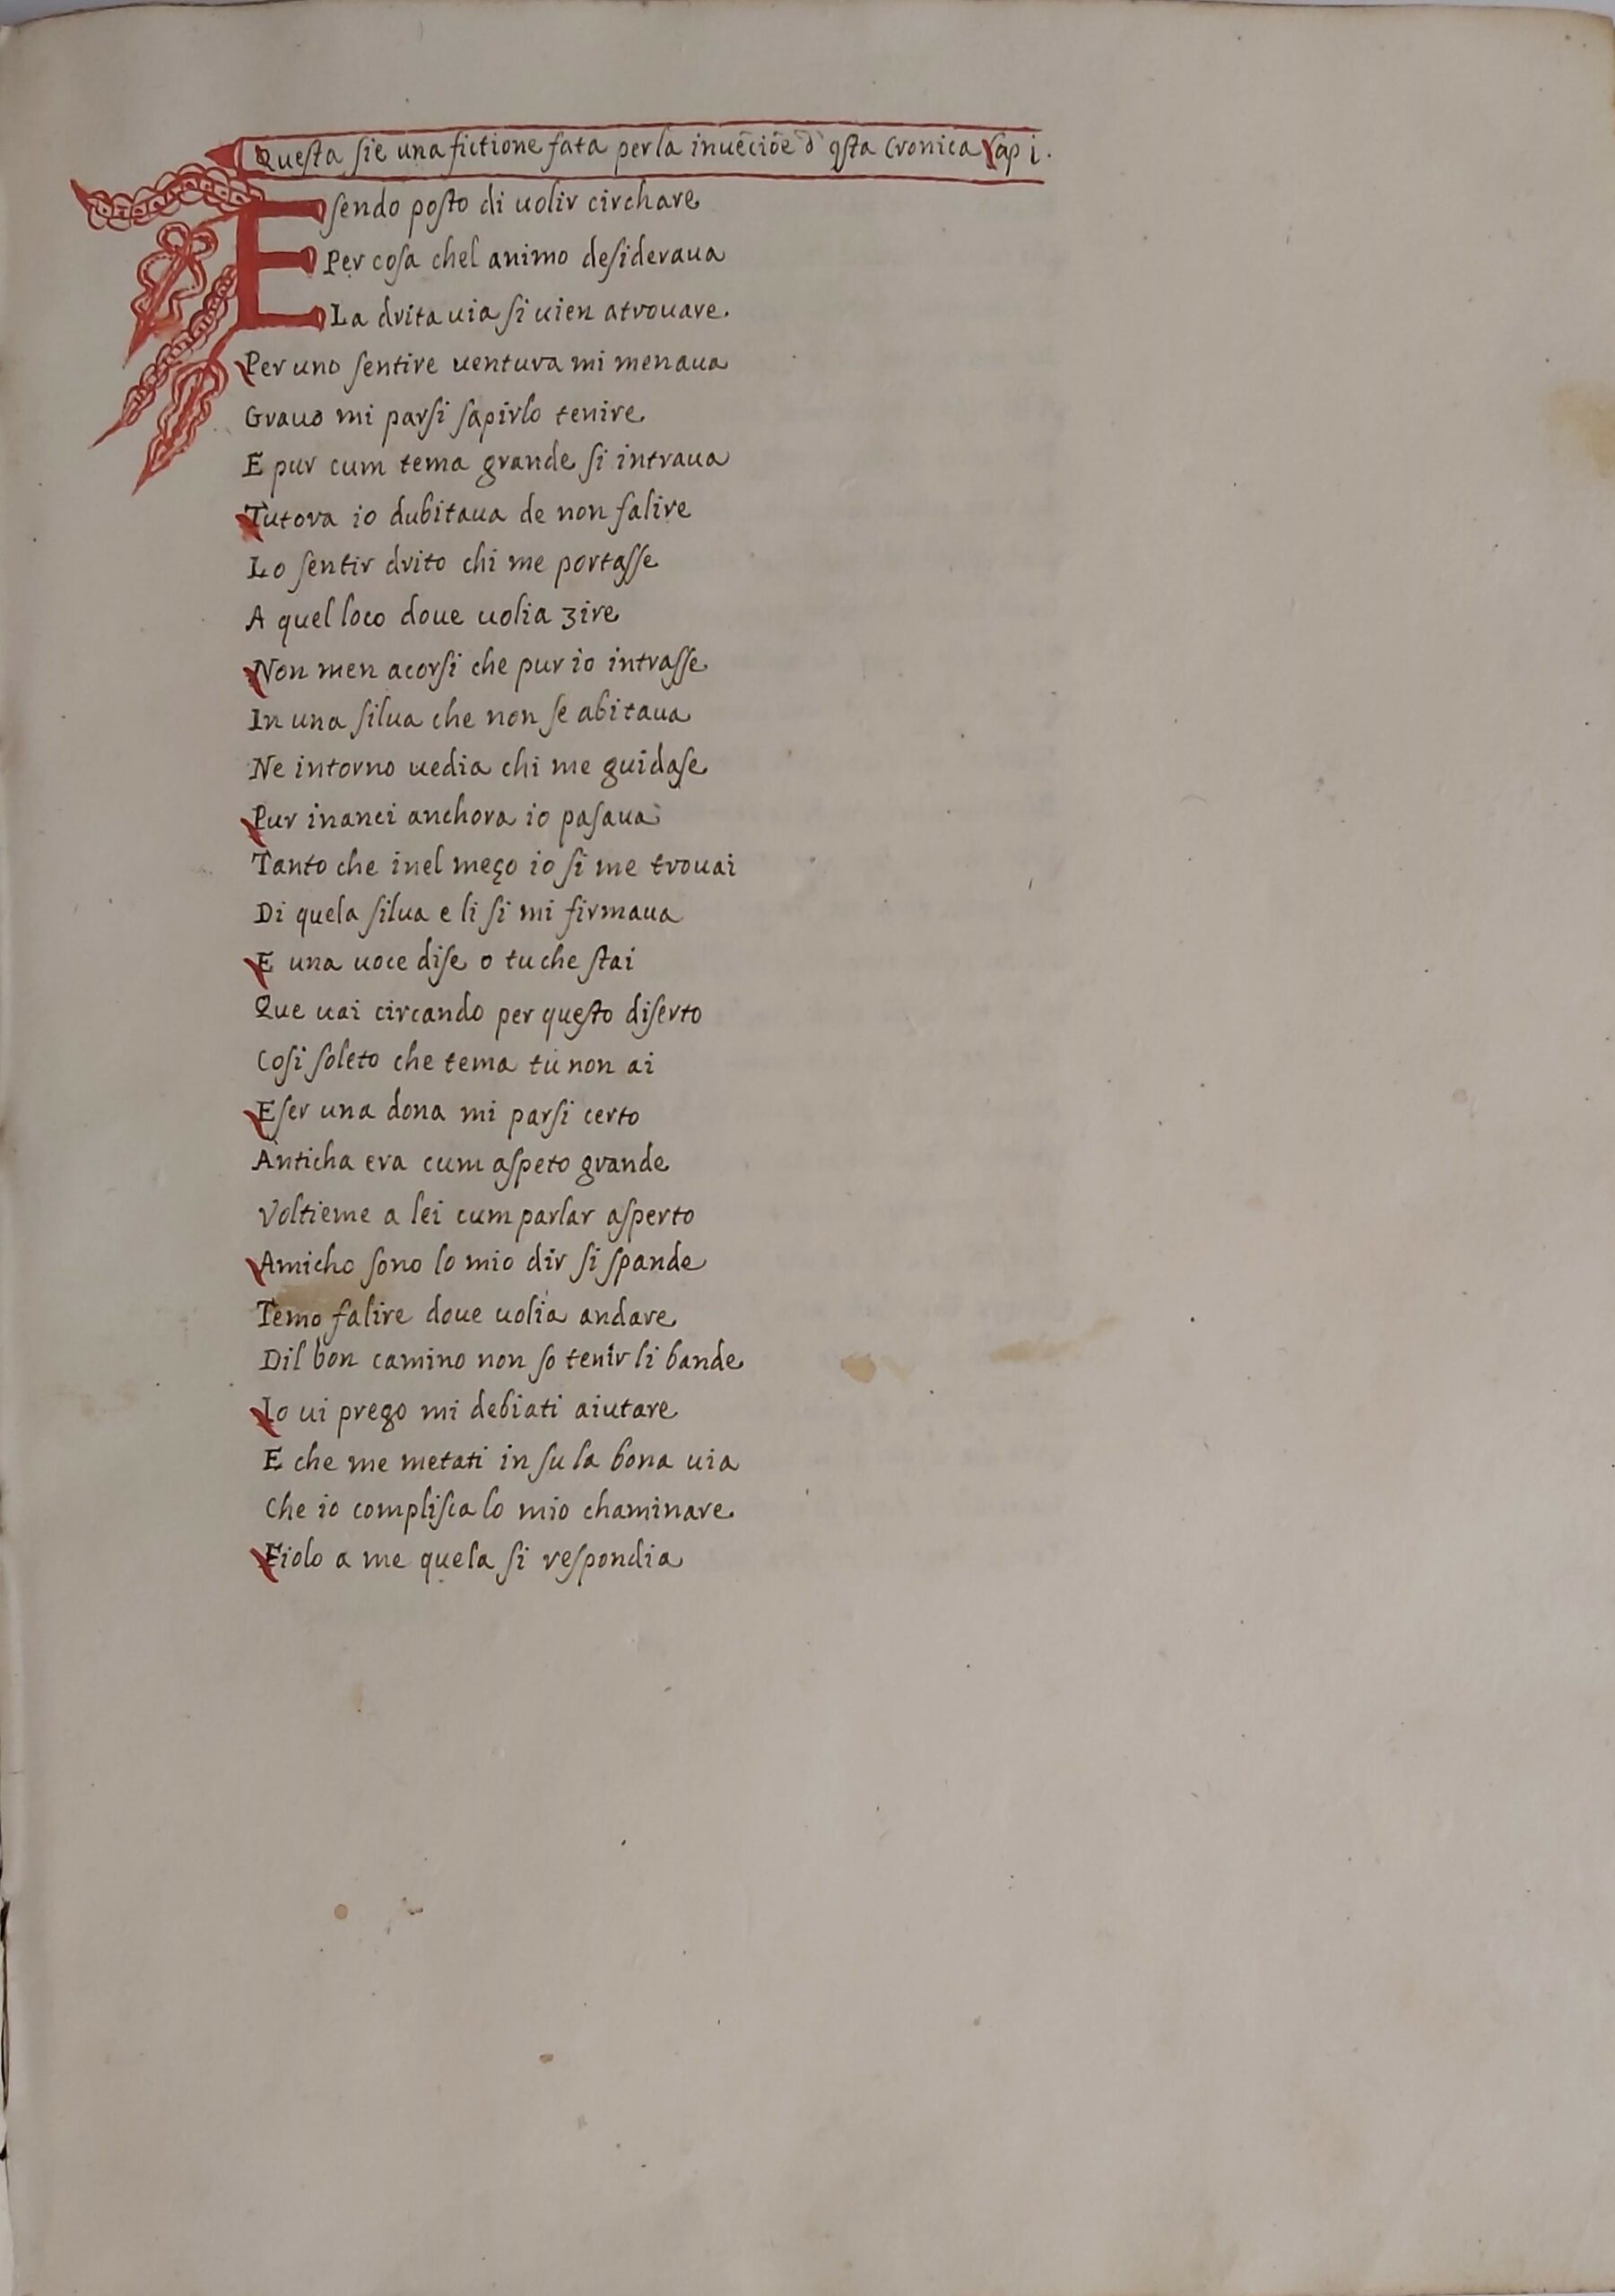 Questa sie una fictione fata per la inuẽciõe d̃ q̃sta Cronica Cap i.
Esendo posto di uolir circhare
Per cosa chel animo desideraua
La drita uia si uien atrouare.
Per uno sentire uentura mi menaua
Grauo mi parsi sapirlo tenire
E pur cum tema grande si intraua
Tutora io dubitaua de non falire
Lo sentir drito chi me portasse
A quel loco doue uolia zire
Non men acorsi che pur io intrasse
In una silua che non se abitaua
Ne intorno uedia chi me guidase
Pur inanci anchora io pasaua
Tanto che inel meço io si me trouai
Di quela silua e li si mi firmaua
E una uoce dise o tu che stai
Que uai circando per questo diserto
Cosi soleto che tema tu non ai
Eser una dona mi parsi certo
Anticha era cum aspeto grande
Voltieme a lei cum parlar asperto
Amicho sono lo mio dir si spande
Temo falire doue uolia andare
Dil bon camino non so tenir li bande
Io ui prego mi debiati aiutare
E che me metati in su la bona uia
Che io complisca lo mio chaminare
Fiolo a me quela si respondia